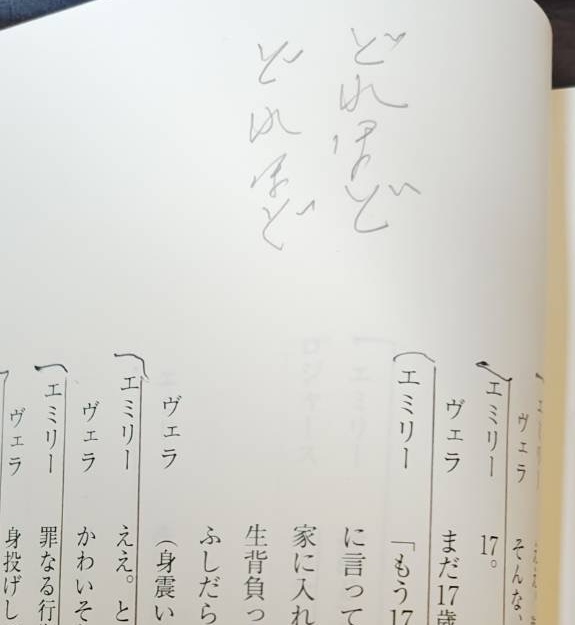 どれほど
どれほど
ヴェラ そんな、
エミリー 17。
ヴェラ まだ17歳
エミリー 「もう17
に言って
家に入れ
生背負っ
ふしだら
ヴェラ (身震い
エミリー ええ。と
ヴェラ かわいそ
エミリー 罪なる行
ヴェラ 身投げし